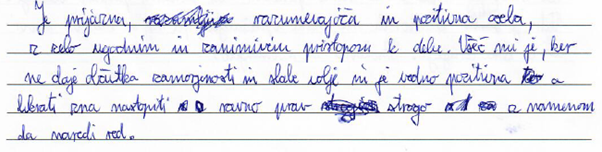 Je prijazna, razumevajoča in pozitivna oseba,
z zelo ugodnim in zanimivim pristopom k delu. Všeč mi je, ker
ne daje občutka zamorjenosti in slabe volje in je vedno pozitivna a
hkrati zna nastopiti ravno prav strogo z namenom
da naredi red.